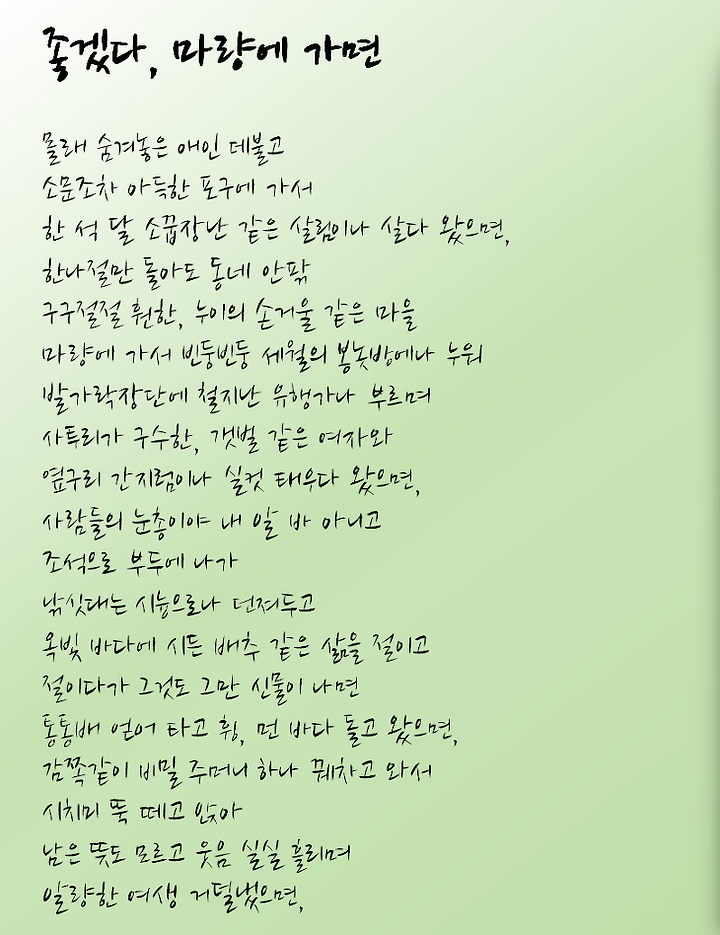 좋겠다, 마량에 가면
몰래 숨겨놓은 애인 데불고
소문조차 아득한 포구에 가서
한 석 달 소꿉장난 같은 살림이나 살다 왔으면,
한나절만 돌아도 동네 안팎
구구절절 훤한, 누이의 손거울 같은 마을
마량에 가서 빈둥빈둥 세월의 봉놋방에나 누워
발가락장단에 철지난 유행가나 부르며
사투리가 구수한, 갯벌 같은 여자와
옆구리 간지럼이나 실컷 태우다 왔으면,
사람들의 눈총이야 내 알 바 아니고
조석으로 부두에 나가
낚싯대는 시늉으로나 던져두고
옥빛 바다에 시든 배추 같은 삶을 절이고
절이다가 그것도 그만 신물이 나면
통통배 얻어 타고 휭, 먼 바다 돌고 왔으면,
감쪽같이 비밀 주머니 하나 꿰차고 와서
시치미 뚝 떼고 앉아
남은 뜻도 모르고 웃음 실실 흘리며
알량한 여생 거덜냈으면,